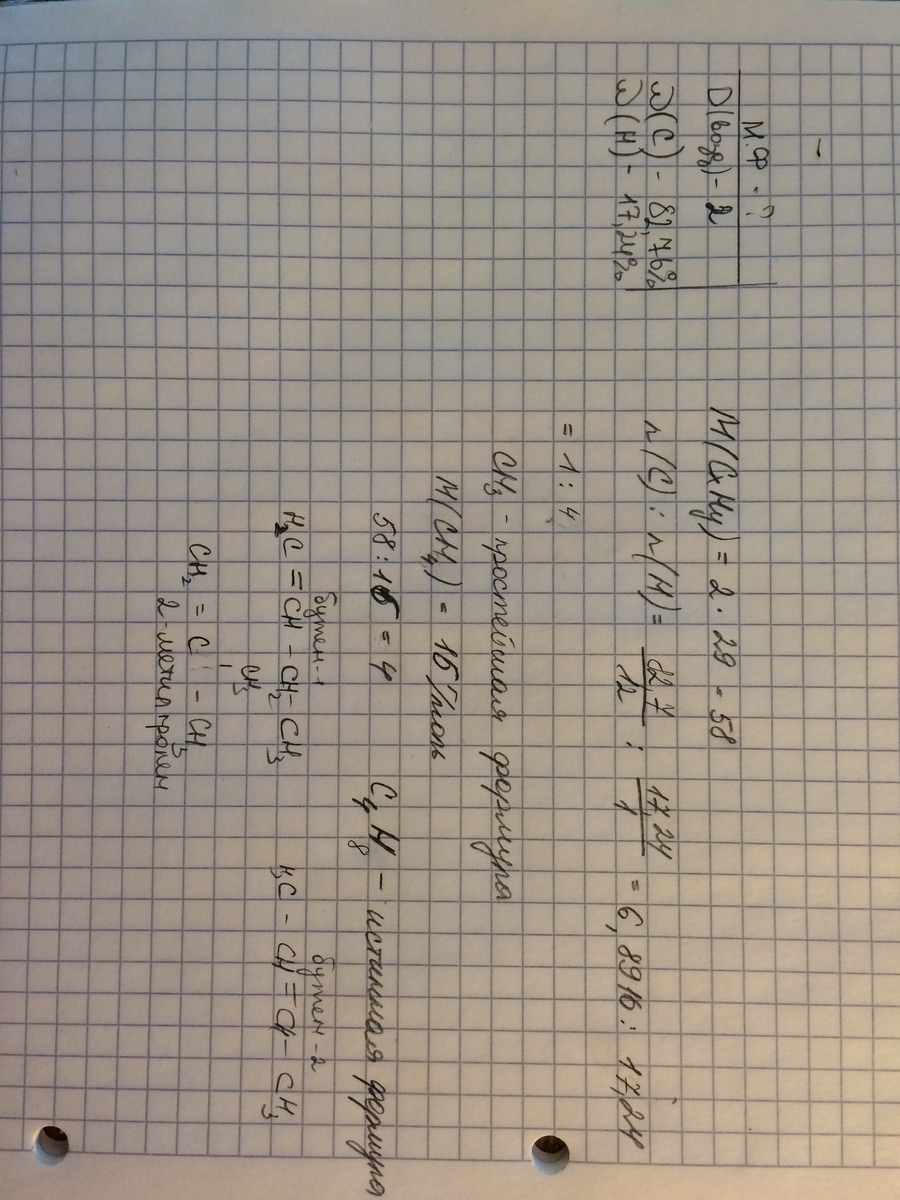 М.Ф. - ?
D(возд) - 2
ω(C) - 82,76%
ω(H) - 17,24%
M(CxHy) = 2 · 29 = 58
n(C) : n(H) = 82,7/12 : 17,24/1 = 6,8916 : 17,24
= 1 : 4
CH₃ - простейшая формула
M(CH₄) = 16 г/моль
58 : 16 = 4
C₄H₈ - истинная формула
бутен-1
бутен-2
H₂C = CH - CH₂ - CH₃
H₃C - CH = CH - CH₃
CH₃
CH₂ = C - CH₃
2-метилпропен